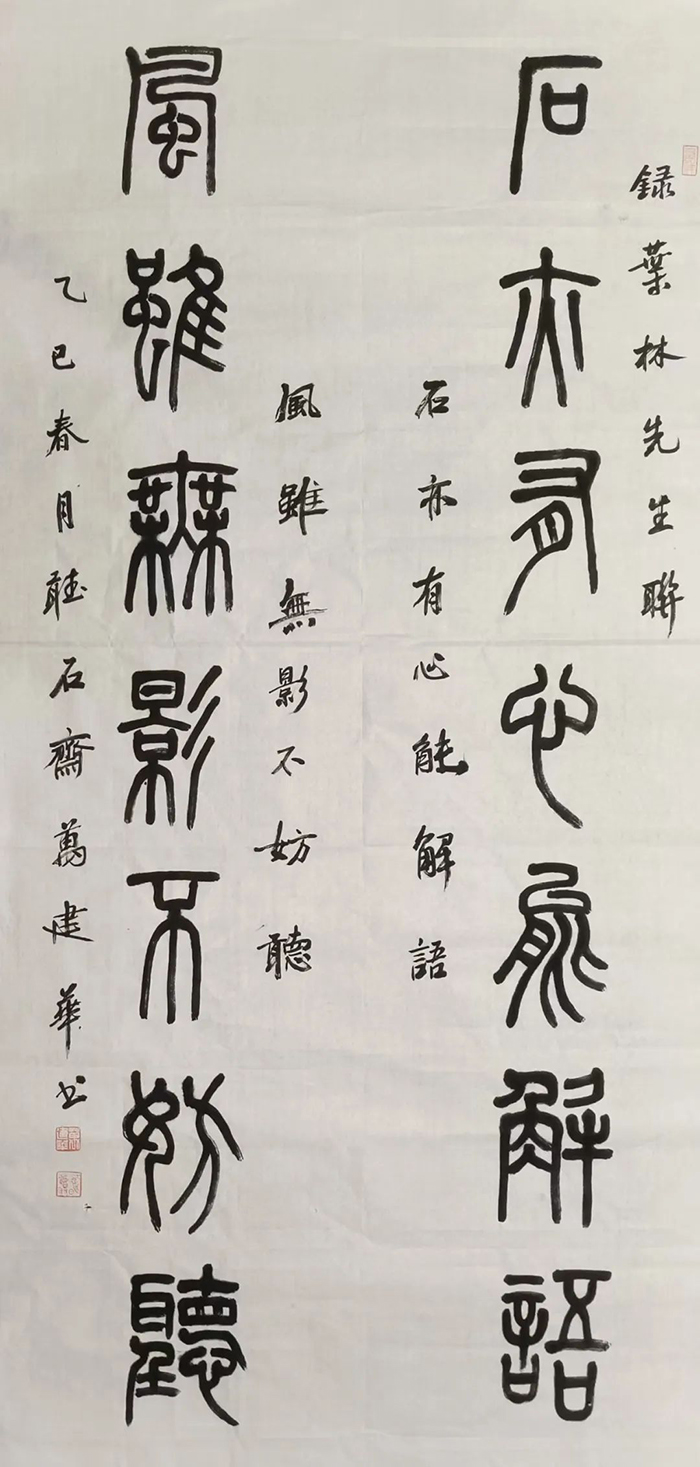 録葉林先生聯
石亦有心能解語
石亦有心能解語
風雖無影不妨聽
風雖無影不妨聽
乙巳春月聽石齋萬建華书